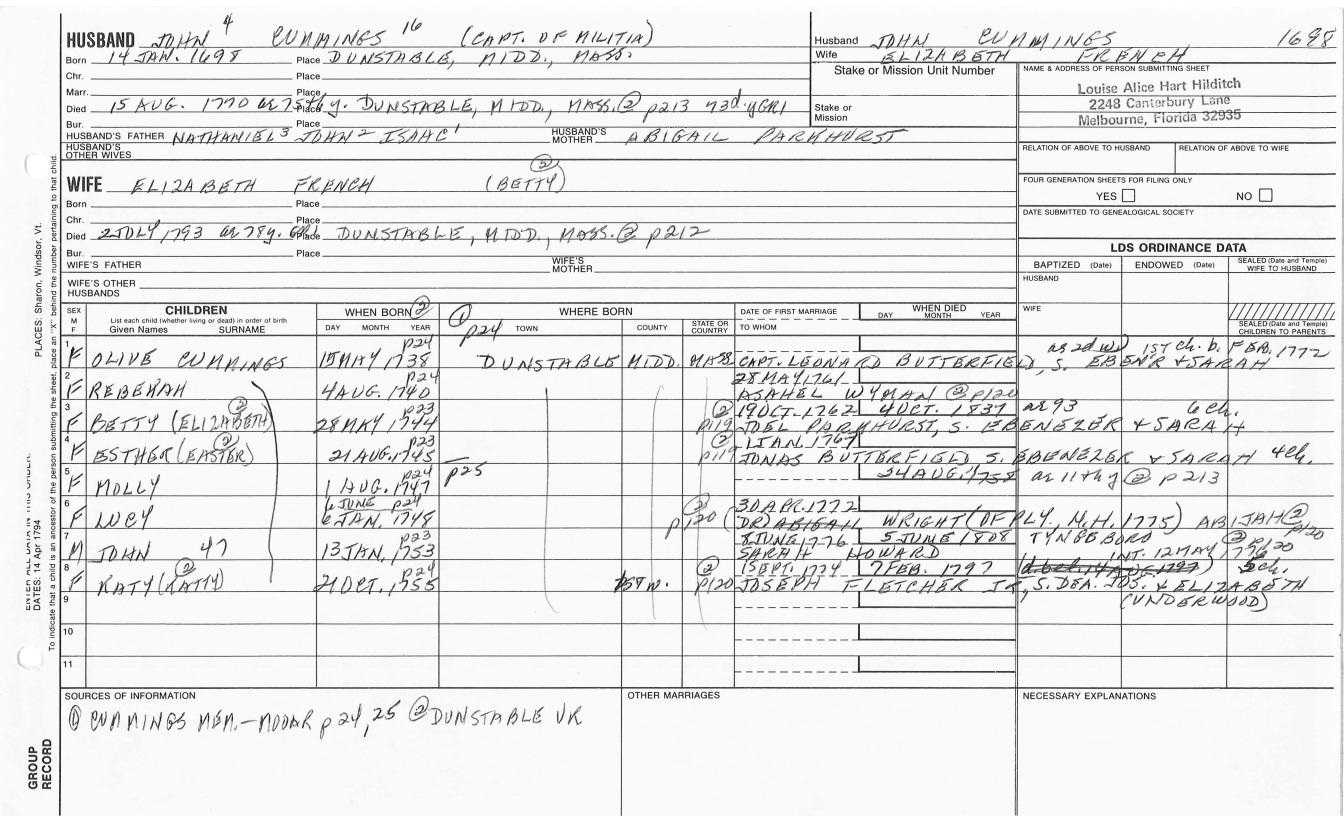 HUSBAND JOHN 4 CUMMINGS 16 (CAPT. OF MILITIA)
Born 14 JAN. 1698 Place DUNSTABLE, MIDD., MASS.
Chr. Place
Marr. Place
Died 15 AUG. 1770 ae 75thy. Place DUNSTABLE, MIDD., MASS. ② p213 73d y GR1
Bur. Place
HUSBAND'S FATHER NATHANIEL 3 JOHN 2 ISAAC 1 HUSBAND'S MOTHER ABIGAIL PARKHURST
HUSBAND'S OTHER WIVES
WIFE ELIZABETH FRENCH (BETTY) ②
Born Place
Chr. Place
Died 2 JULY 1793 ae 78y. GR1 Place DUNSTABLE, MIDD., MASS. ② p212
Bur. Place
WIFE'S FATHER WIFE'S MOTHER
WIFE'S OTHER HUSBANDS
Husband JOHN CUMMINGS 1698
Wife ELIZABETH FRENCH
Stake or Mission Unit Number
Stake or Mission
NAME & ADDRESS OF PERSON SUBMITTING SHEET
Louise Alice Hart Hilditch
2248 Canterbury Lane
Melbourne, Florida 32935
RELATION OF ABOVE TO HUSBAND RELATION OF ABOVE TO WIFE
FOUR GENERATION SHEETS FOR FILING ONLY
YES NO
DATE SUBMITTED TO GENEALOGICAL SOCIETY
LDS ORDINANCE DATA
BAPTIZED (Date) ENDOWED (Date) SEALED (Date and Temple) WIFE TO HUSBAND
HUSBAND
WIFE
SEALED (Date and Temple) CHILDREN TO PARENTS
SEX M F CHILDREN WHEN BORN ② WHERE BORN DATE OF FIRST MARRIAGE WHEN DIED
List each child (whether living or dead) in order of birth
Given Names SURNAME DAY MONTH YEAR ① p24 TOWN COUNTY STATE OR COUNTRY TO WHOM DAY MONTH YEAR
1 p24 as 2d w. 1ST ch. b. FEB. 1772
F OLIVE CUMMINGS 15 MAY 1738 DUNSTABLE MIDD. MASS. CAPT. LEONARD BUTTERFIELD, S. EBEN'R & SARAH
2 p24 28 MAY 1761
F REBEKAH 4 AUG. 1740 ASAHEL WYMAN ② p120
3 ② p23 ② 19 OCT. 1762 4 OCT. 1837 ae 93 6 ch.
F BETTY (ELIZABETH) 28 MAY 1744 p119 JOEL PARKHURST, S. EBENEZER & SARAH
4 ② p23 ② 1 JAN. 1767
F ESTHER (EASTER) 21 AUG. 1745 p119 JONAS BUTTERFIELD S. EBENEZER & SARAH 4 ch.
5 p24 p25 24 AUG. 1758 ae 11th y ② p213
F MOLLY 1 AUG. 1747
6 6 JUNE p24 ② 30 APR. 1772
F LUCY 6 JAN. 1748 p120 (DR) ABIGAH WRIGHT (OF PLY., N.H. 1775) ABIJAH ② p120
7 p23 8 JUNE 1776 5 JUNE 1808 TYNGSBORO ② p120
M JOHN 47 13 JAN. 1753 SARAH HOWARD INT. 12 MAY 1776
8 ② p24 ② 1 SEPT. 1774 7 FEB. 1797 5 ch.
F KATY (CATTY) 21 OCT. 1755 p120 JOSEPH FLETCHER JR., S. DEA. JOS. & ELIZABETH
(UNDERWOOD)
9
10
11
SOURCES OF INFORMATION
① CUMMINGS MEM.-MOOAR p 24, 25 ② DUNSTABLE VR
OTHER MARRIAGES
NECESSARY EXPLANATIONS
PLACES: Sharon, Windsor, Vt.
DATES: 14 Apr 1794
To indicate that a child is an ancestor of the person submitting the sheet, place an "X" behind the number pertaining to that child.
GROUP RECORD